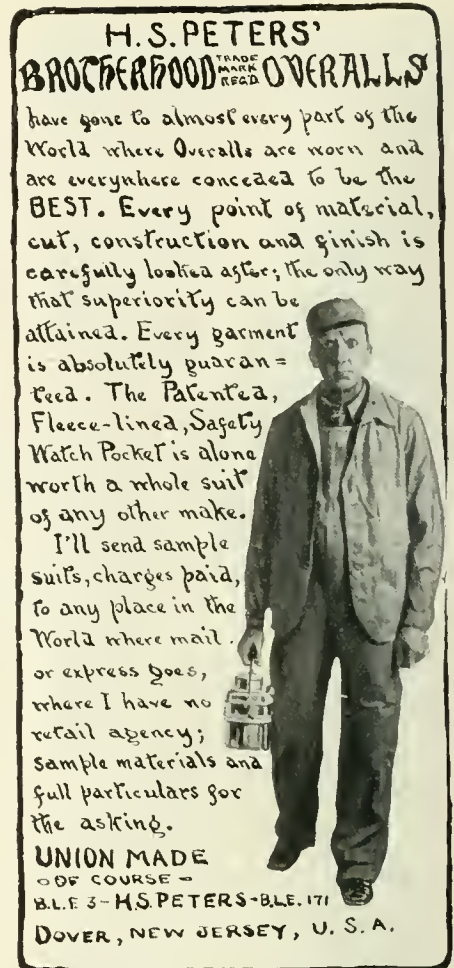 H.S. PETERS'
BROTHERHOOD TRADE MARK REG'D OVERALLS
have gone to almost every part of the
World where Overalls are worn and
are everywhere conceded to be the
BEST. Every point of material,
cut, construction and finish is
carefully looked after; the only way
that superiority can be
attained. Every garment
is absolutely guaran=
teed. The Patented,
Fleece-lined, Safety
Watch Pocket is alone
worth a whole suit
of any other make.
I'll send sample
suits, charges paid,
to any place in the
World where mail
or express goes,
where I have no
retail agency;
sample materials and
full particulars for
the asking.
UNION MADE
-OF COURSE-
B.L.E 3-H.S. PETERS-B.L.E. 171
DOVER, NEW JERSEY, U. S. A.